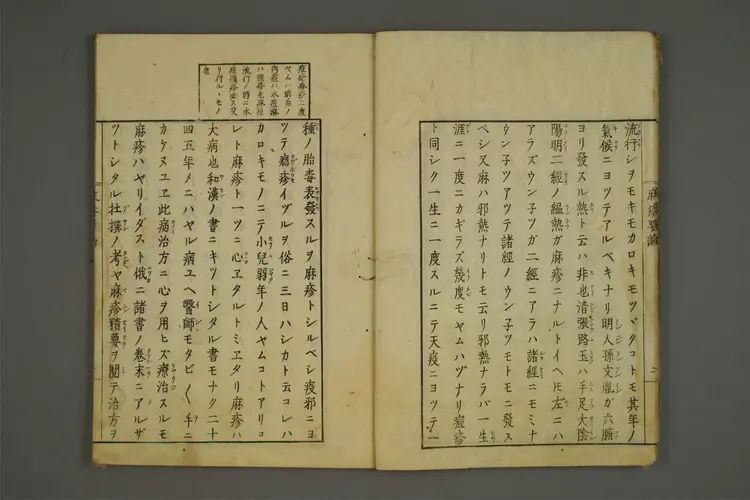 流行シヲモキモカロキモツヾクコトモ其年ノ
氣候ニヨツテアルベキナリ明人孫文胤ガ六腑
ヨリ發スル熱ト云ハ非也清張路玉ハ手足大陰
陽明二經ノ緼熱ガ麻疹ニナルトイヘ𪜈左ニハ
アラズウン子ツガ二經ニアラハ諸經ニモミナ
ウン子ツアツテ諸經ノウン子ツモトモニ發ス
ベシ又麻ハ邪熱ナリトモ云リ邪熱ナラバ一生
涯ニ一度ニカギラズ幾度モヤムハヅナリ痘疹
ト同シク一生ニ一度スルニテ天疫ニヨツテ一
種ノ胎毒表發スルヲ麻疹トシルベシ疫邪ニヨ
ツテ癮疹イヅルヲ俗ニ三日ハシカト云コレハ
カロキモノニテ小兒弱年ノ人ヤムコトアリコ
レト麻疹ト一ツニ心ヱタルトミヱタリ麻疹ハ
大病也和漢ノ書ニキツトシタル書モナク二十
四五年メニハヤル病ユヘ醫師モタビ〱手ニ
カケヌユヱ此病治方ニ心ヲ用ヒズ療治スルモ
麻疹ハヤリイダスト俄ニ諸書ノ巻末ニアルザ
ツトシタル杜撰ノ考ヤ麻疹精要ヲ閲テ治方ヲ